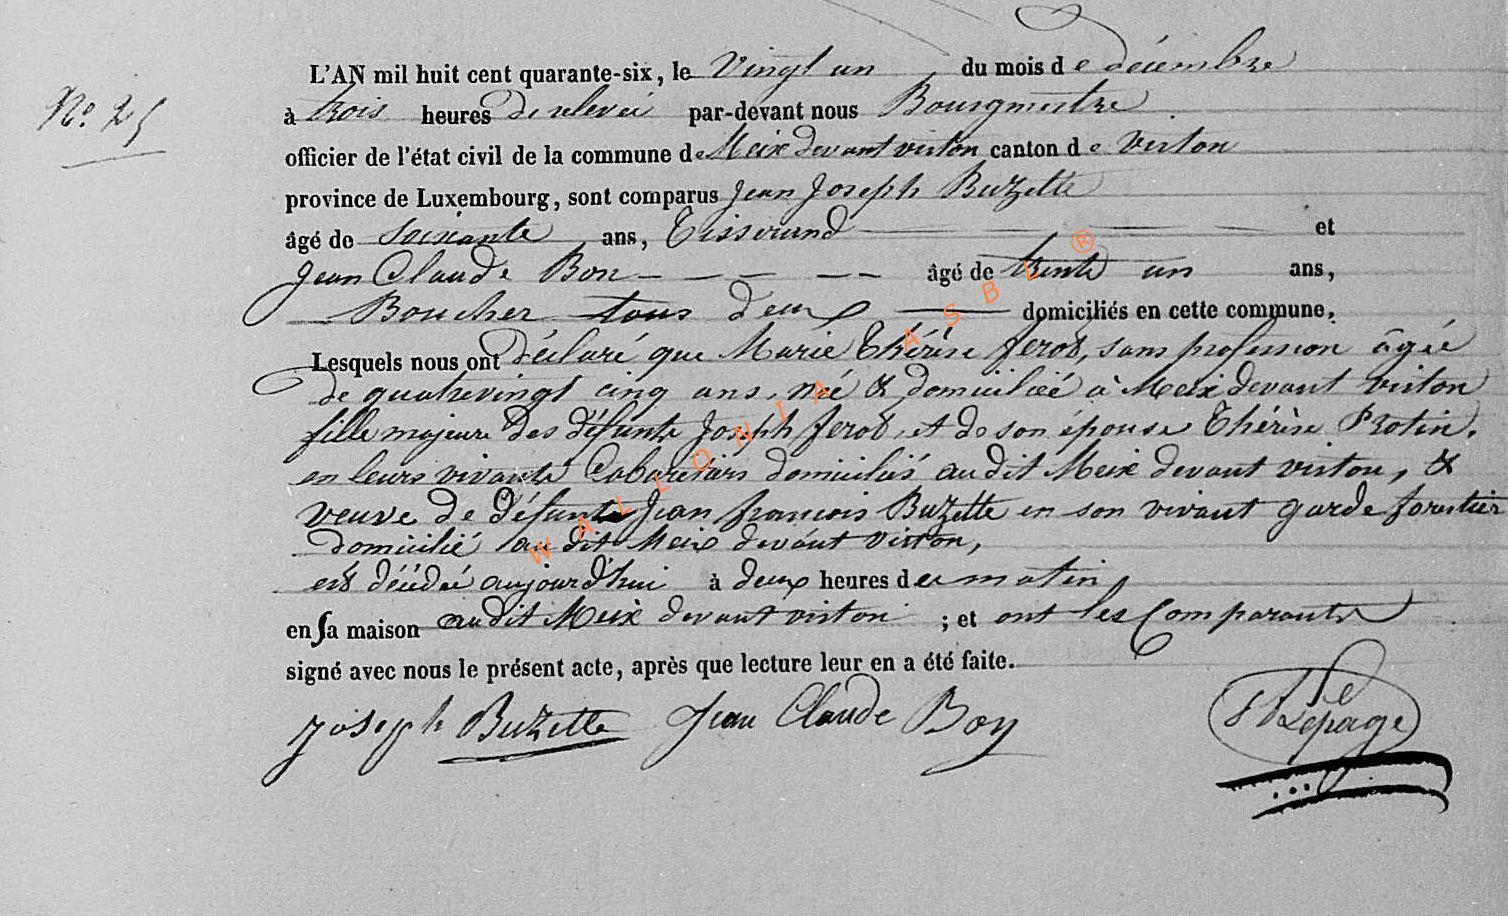 N.º 25
L'AN mil huit cent quarante-six, le Vingt un du mois de décembre
à trois heures de relevée par-devant nous Bourgmestre
officier de l'état civil de la commune de Meix devant virton canton de Virton
province de Luxembourg, sont comparus Jean Joseph Buzette
âgé de soixante ans, Tisserand et
Jean Claude Bon âgé de trente un ans,
Boucher tous deux domiciliés en cette commune.
Lesquels nous ont déclaré que Marie Thérèse Jerod, sans profession âgée
de quatrevingt cinq ans, née & domiciliée à Meix devant virton
fille majeure des défunts Joseph Jerod, et de son épouse Thérèse Protin.
en leurs vivants Cabaretiers domiciliés audit Meix devant virton, &
veuve de défunt Jean françois Buzette en son vivant garde forestier
domicilié au dit Meix devant virton,
est décédée aujourd'hui à deux heures du matin,
en sa maison audit Meix devant virton ; et ont les Comparants
signé avec nous le présent acte, après que lecture leur en a été faite.
Joseph Buzette Jean Claude Bon Lepage
WALLONIA ASBL ®